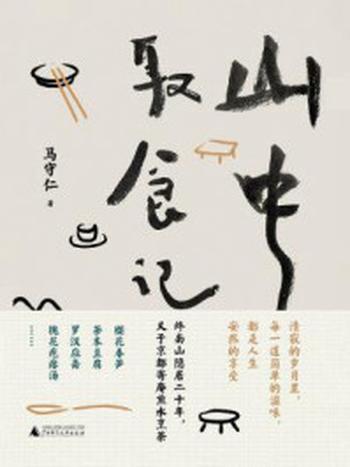 山中
取食记
马守仁 著
清寂的岁月里，
每一道简单的滋味，
都是人生
安然的享受
终南山隐居二十年，
又于京都寄庵煎水烹茶
樱花春笋
豆腐
罗汉应斋
槐花疙瘩汤
……